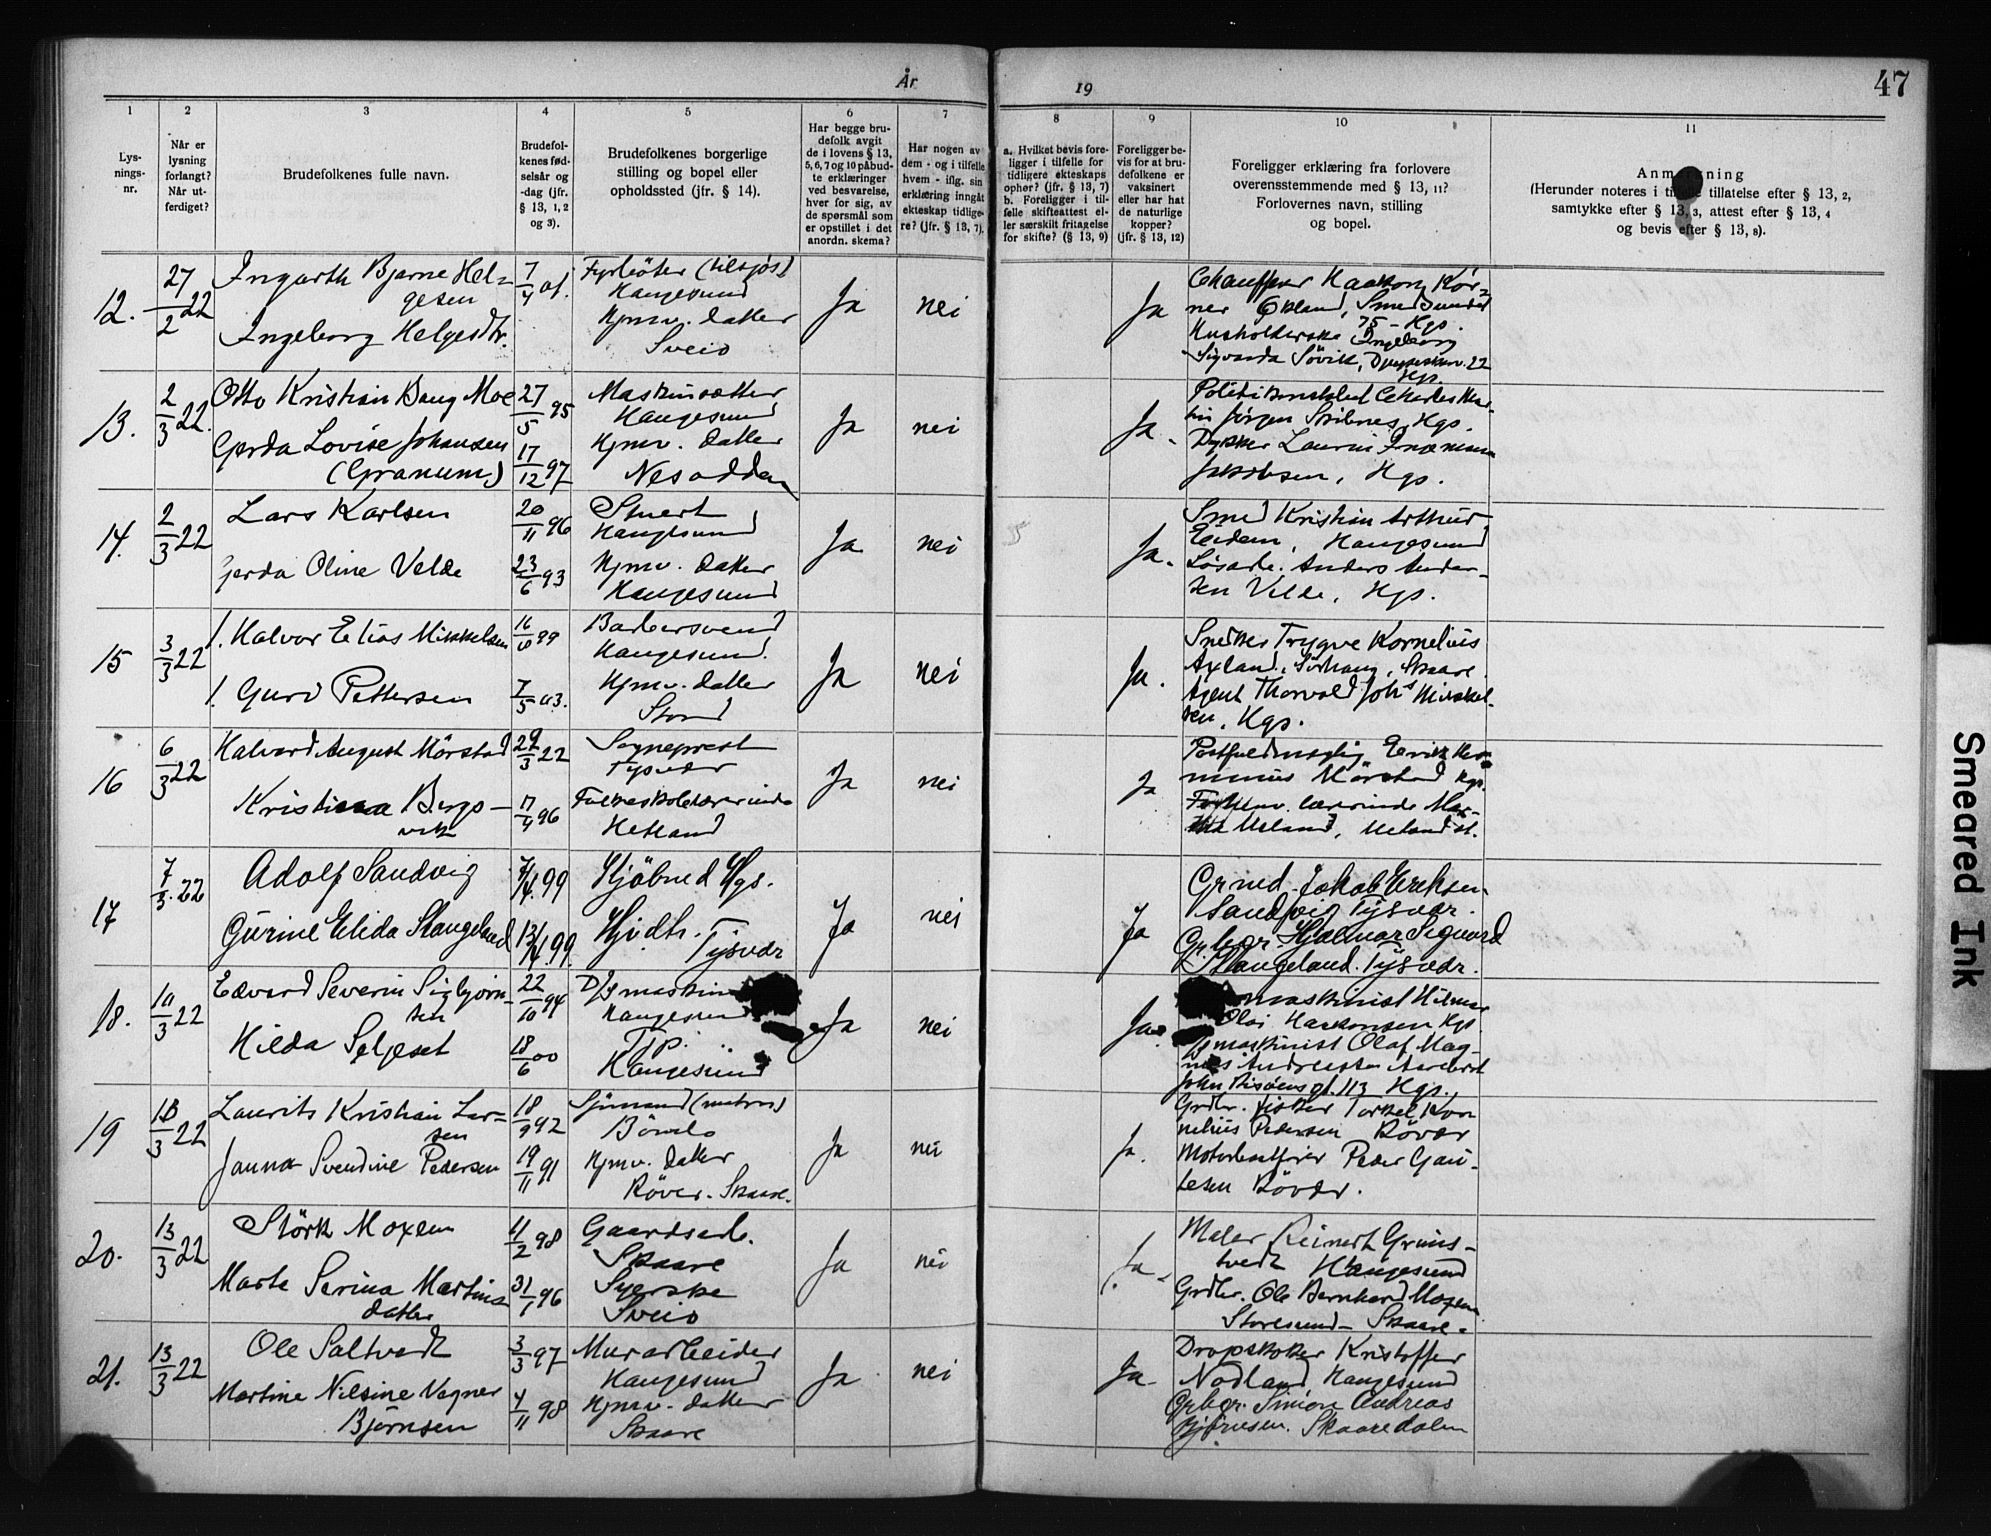 År
19
47
1
2
3
4
5
6
7
8
9
10
11
Lys-
nings-
nr.
Når er
lysning
forlangt?
Når ut-
ferdiget?
Brudefolkenes fulle navn.
Brudefol-
kenes fød-
selsår og
-dag (jfr.
§ 13, 1, 2
og 3).
Brudefolkenes borgerlige
stilling og bopel eller
opholdssted (jfr. § 14).
Har begge bru-
defolk avgit
de i lovens § 13,
5, 6, 7 og 10 påbud-
te erklæringer
ved besvarelse,
hver for sig, av
de spørsmål som
er opstillet i det
anordn. skema?
Har nogen av
dem - og i tilfelle
hvem - iflg. sin
erklæring inngåt
ekteskap tidlige-
re? (jfr. § 13, 7).
a. Hvilket bevis fore-
ligger i tilfelle for
tidligere ekteskaps
ophør? (jfr. § 13, 7)
b. Foreligger i til-
felle skifteattest el-
ler særskilt fritagelse
for skifte? (§ 13, 9)
Foreligger be-
vis for at bru-
defolkene er
vaksinert
eller har hat
de naturlige
kopper?
(jfr. § 13, 12)
Foreligger erklæring fra forlovere
overensstemmende med § 13, 11?
Forlovernes navn, stilling
og bopel.
Anmerkning
(Herunder noteres i tilfelle tillatelse efter § 13, 2,
samtykke efter § 13, 3, attest efter § 13, 4
og bevis efter § 13, 8).
12.
27/2 22
Ingarth Bjarne Hel-
gesen
Ingeborg Helgesdtr.
7/4 01.
Fyrbøter (tilsjøs)
Haugesund
Hjmv. datter
Sveio
Ja
nei
Ja
Chauffør Haakon Kör-
ner Økland, Smedsundet
75 - Hgs.
Husholderske Ingeborg
Sigvarda Sövik,
22
Hgs.
13.
2/3 22.
Otto Kristian Bang Moe
Gerda Lovise Johansen
(Granum)
27/5 95
17/12 97
Maskinsætter
Haugesund
Hjmv. datter
Nesodden
Ja
nei
Ja.
Politikonstabel Charles Mar-
tin Jörgen Hgs.
Dykker Laurin
Jakobsen, Hgs.
14.
2/3 22
Lars Karlsen
Gerda Oline Velde
20/11 96
23/6 93
Stuert
Haugesund
Hjmv. datter
Haugesund
Ja
nei
Ja.
Smed Kristian Arthur
Eidem, Haugesund
Løsarb. Anders Ander-
sen Velde, Hgs.
15
3/3 22
Halvor Elias Mikkelsen
Guro Pettersen
7/5 03.
Barbersvend
Haugesund.
Hjmv. datter
Stord
Ja
nei
Ja.
Snekker Trygve Kornelius
Axland, Sörhaug, Skaare
Agent Thorvald Johs Mikkel-
sen, Hgs.
16
6/3 22
Halvard August Mörstad
Kristina Bergs-
vik
17/9 96
Sogneprest
Tysvær
Folkeskolelærerinde
Hetland
Ja
nei
Ja
Postfuldmægtig Eirik Her-
minius Mörstad Hgs.
lærerinde Mar-
17
7/3. 22
Adolf Sandvig
Gurine Elida Stangeland
7/4. 99
Kjöbmd Hgs.
Hjvdtr.
Tysvær
Ja
nei
Ja
Grmd. Jakob Eriksen
Sandvig Tysvær.
Grbgr. Hjalmar Sigvard
Stangeland. Tysvær.
18.
10/3 22
Edvard Severin Sigbjørn-
sen
Hilda Seljeset
22/10 94
18/6 00
D/s maskin
Haugesund
Tjp.
Haugesund
Ja
nei
Ja
maskinist Hilmar
Olai Haakonsen Hgs
D/s maskinist Olaf Mag-
nus Andreas
113 Hgs.
19
Laurits Kristian Lar-
sen
Janna Svendine Pedersen
18/9 92
19/11 91
Sjömand
Bömlo
Hjmv. datter
Röver. Skaare.
Ja
nei
Ja.
Grdbr. fisker Torkel Kor-
nelius Pedersen Rövær
Peder Gau-
tesen Rövær.
20.
13/3 22
Störk Moxem
Marte Serina Martins
datter
11/2 98
31/1 96
Gaardsarb.
Skaare
Syerske
Sveio
Ja
nei
Ja
Maler Reinert Grims-
tvedt Haugesund
Grdbr. Ole Bernhard Moxem
Storesund - Skaare.
21.
13/3 22
Ole Saltvedt
Martine Nilsine Vagner
Björnsen
3/3 97
4/11 98
Murarbeider
Haugesund
Hjmv. datter
Skaare
Ja
nei
Ja
Dropskoker Kristoffer
Nodland Haugesund
Grbgr. Simon Andreas
Björnsen. Skaaredalen
Smeared Ink